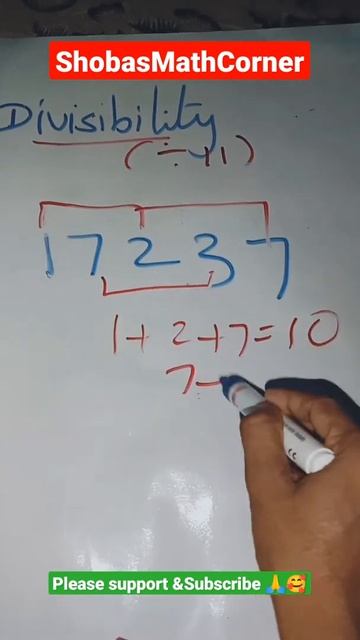 ShobasMathCorner
Divisibility
(÷11)
17237
1+2+7=10
7+
Please support &Subscribe 🙏🥰